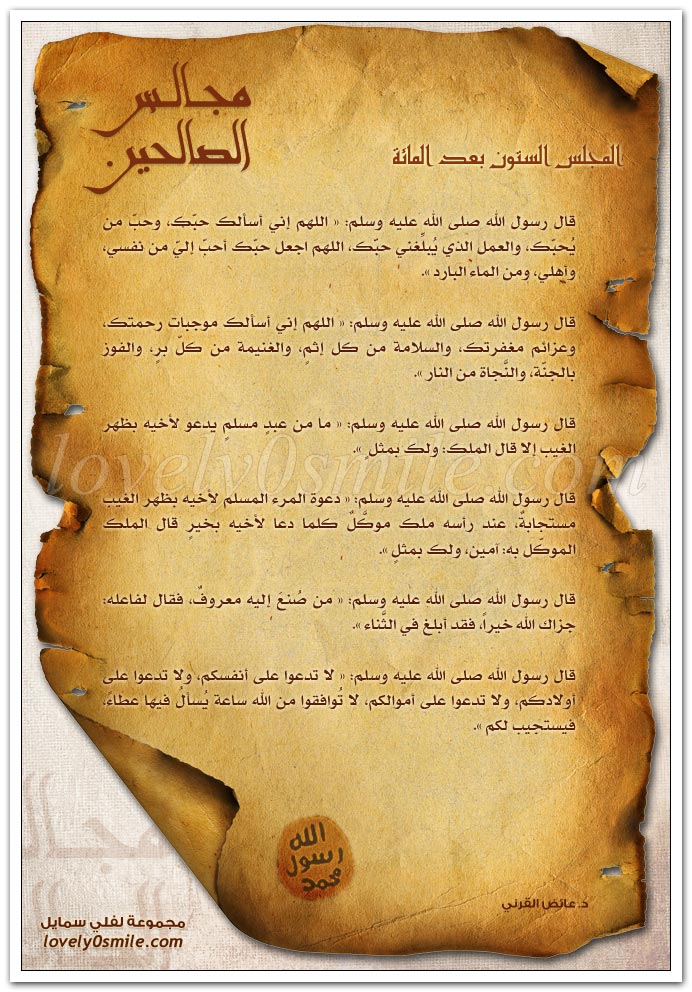 مجالس
الصالحين
المجلس الستون بعد المائة
قال رسول الله صلى الله عليه وسلم: « اللهم إني أسألك حبّك، وحبّ من
يُحبّك، والعمل الذي يُبلِّغني حبّك، اللهم اجعل حبّك أحبّ إليّ من نفسي،
وأهلي، ومن الماء البارد ».
قال رسول الله صلى الله عليه وسلم: « اللهم إني أسألك موجبات رحمتك،
وعزائم مغفرتك، والسلامة من كل إثمٍ، والغنيمة من كلّ برٍ، والفوز
بالجنّة، والنَّجاة من النار ».
قال رسول الله صلى الله عليه وسلم: « ما من عبدٍ مسلمٍ يدعو لأخيه بظهر
الغيب إلا قال الملك: ولك بمثلٍ ».
lovely0smile.com
قال رسول الله صلى الله عليه وسلم: « دعوة المرء المسلم لأخيه بظهر الغيب
مستجابةٌ، عند رأسه ملك موكَّلٌ كلما دعا لأخيه بخيرٍ قال الملك
الموكّل به: آمين، ولك بمثلٍ ».
قال رسول الله صلى الله عليه وسلم: « من صُنعَ إليه معروفٌ، فقال لفاعله:
جزاك الله خيراً، فقد أبلغ في الثَّناء ».
قال رسول الله صلى الله عليه وسلم: « لا تدعوا على أنفسكم، ولا تدعوا على
أولادكم، ولا تدعوا على أموالكم، لا تُوافقوا من الله ساعة يُسألُ فيها عطاءً،
فيستجيب لكم ».
الله
رسول
محمد
د.عائض القرني
مجموعة لفلي سمايل
lovely0smile.com